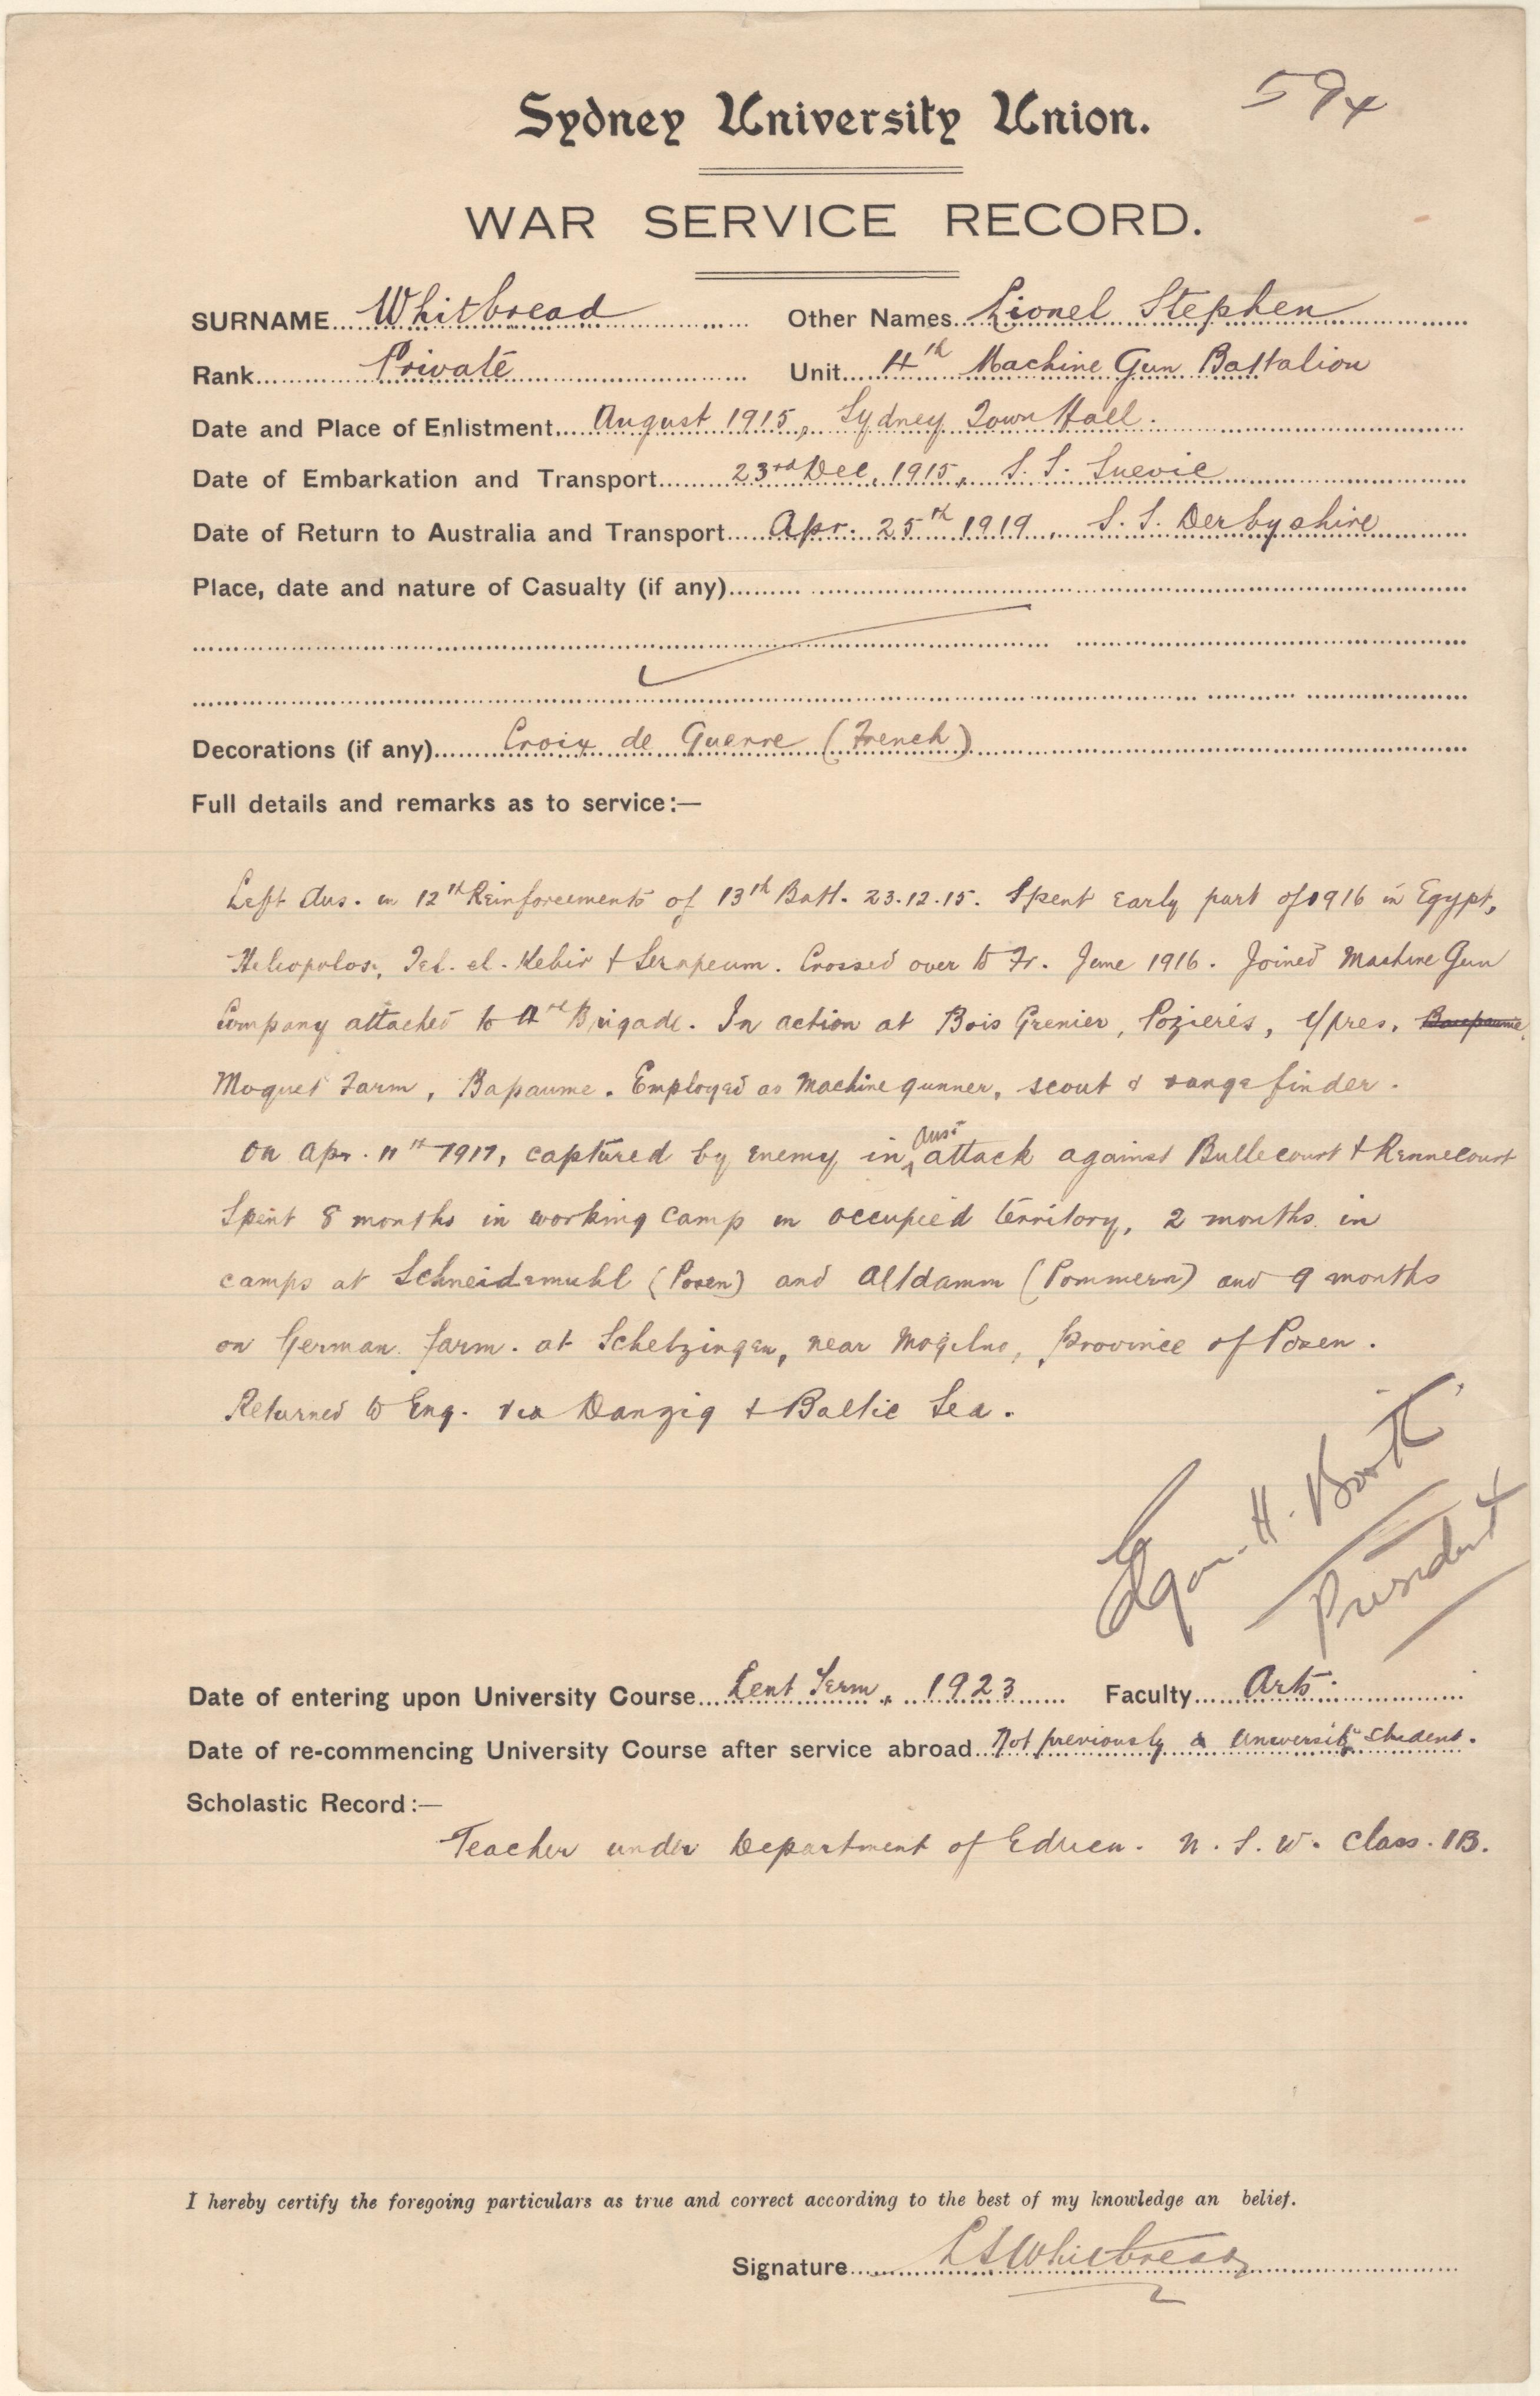 594
Sydney University Union.
WAR SERVICE RECORD.
SURNAME Whitbread Other Names Lionel Stephen
Rank Private Unit 4th Machine Gun Battalion
Date and Place of Enlistment August 1915, Sydney Town Hall.
Date of Embarkation and Transport 23rd Dec. 1915, S. S. Suevic
Date of Return to Australia and Transport Apr. 25th 1919, S. S. Derbyshire
Place, date and nature of Casualty (if any)
Decorations (if any) Croix de Guerre (French)
Full details and remarks as to service:—
Left Aus. in 12th Reinforcements of 13th Batt. 23.12.15. Spent early part of 1916 in Egypt,
Heliopolos, Tel. el. Kebir & Serapeum. Crossed over to Fr. June 1916. Joined Machine Gun
Company attached to 4th Brigade. In action at Bois Grenier, Pozieres, Ypres,
Moquet Farm, Bapaume. Employed as Machine gunner, scout & range finder.
On Apr. 11th 1917, captured by enemy in Aust attack against Bullecourt & Rennecourt
Spent 8 months in working camp in occupied territory, 2 months in
camps at Schneidemuhl (Posen) and Altdamm (Pommern) and 9 months
on German farm. at Schetzingen, near Mogilno, Province of Posen.
Returned to Eng. via Danzig & Baltic Sea.
H. Booth
President
Date of entering upon University Course Lent Term, 1923 Faculty Arts.
Date of re-commencing University Course after service abroad Not previously a University Student.
Scholastic Record:—
Teacher under Department of Educn. N. S. W. Class. 1B.
I hereby certify the foregoing particulars as true and correct according to the best of my knowledge an belief.
Signature L S Whitbread